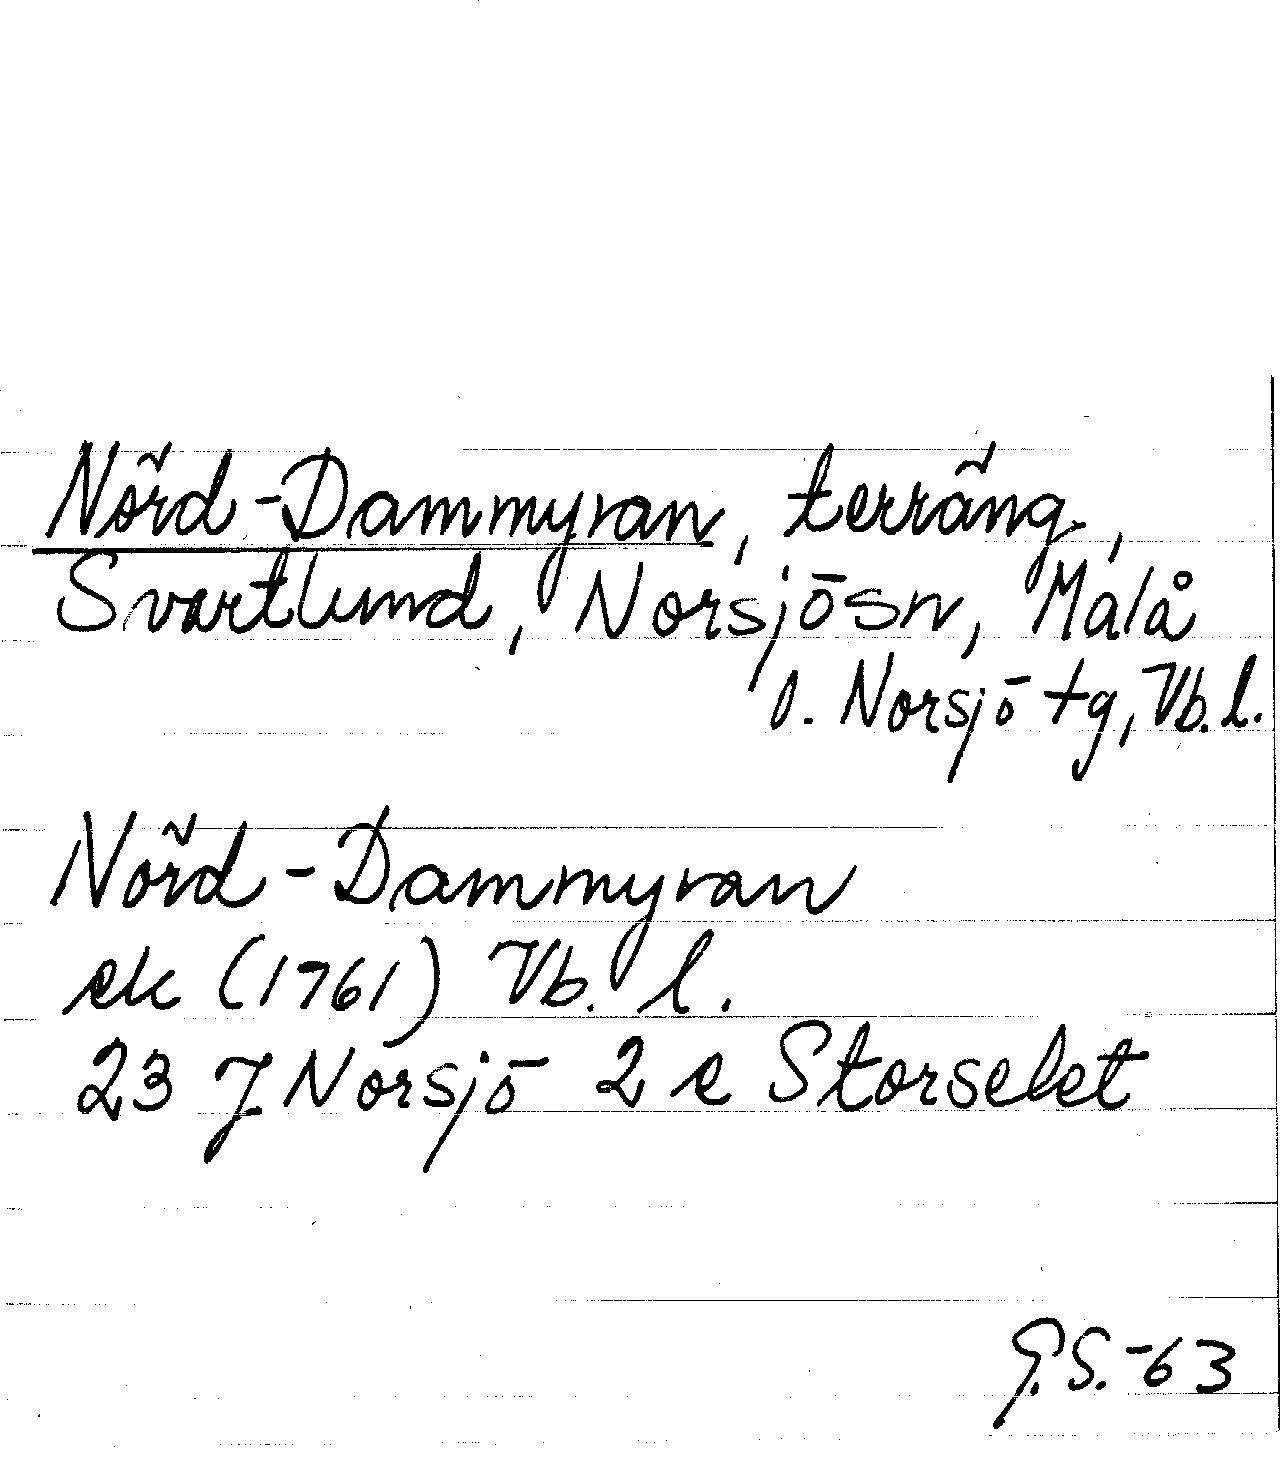 Nörd-Dammyran, terräng,
Svartlund, Norsjö sn, Malå
o. Norsjö tg, Vb. l.
Nörd-Dammyran
ek (1761) Vb. l.
23 J Norsjö 2 e Storselet
G.S.-63